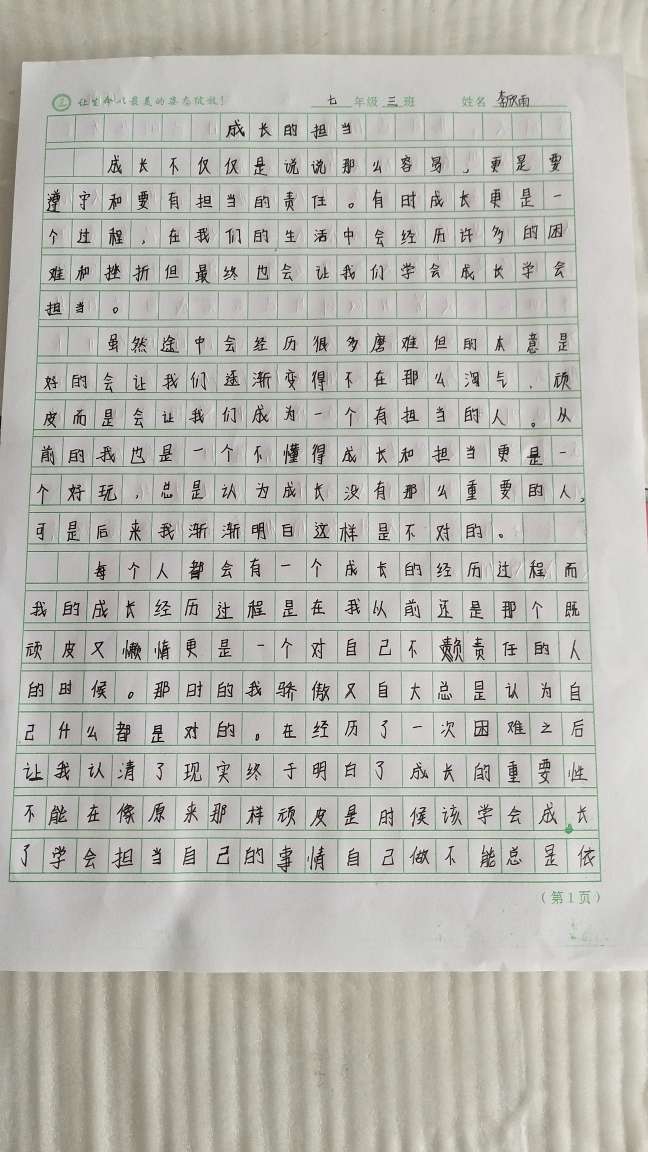 让生命以最美的姿态绽放!
七年级三班 姓名 李欣雨
成长的担当
成长不仅仅是说说那么容易,更是要
遵守和要有担当的责任。有时成长更是一
个过程,在我们的生活中会经历许多的困
难和挫折但最终也会让我们学会成长学会
担当。
虽然途中会经历很多磨难但的本意是
好的会让我们逐渐变得不在那么淘气、顽
皮而是会让我们成为一个有担当的人。从
前的我也是一个不懂得成长和担当更是一
个好玩,总是认为成长没有那么重要的人,
可是后来我渐渐明白这样是不对的。
每个人都会有一个成长的经历过程而
我的成长经历过程是在我以前还是那个既
顽皮又懒惰更是一个对自己不负责任的人
的时候。那时的我骄傲又自大总是认为自
己什么都是对的。在经历了一次困难之后
让我认清了现实终于明白了成长的重要性
不能在像原来那样顽皮是时候该学会成长
了学会担当自己的事情自己做不能总是依
(第1页)